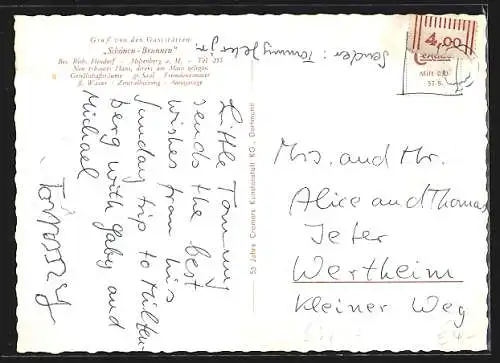 Gruß von den Gaststätten
„Schönen-Brunnen"
Neu erbautes Haus, direkt am Main gelegen
Gesellschaftsräume - gr. Saal - Fremdenzimmer
fl. Wasser - Zentralheizung -
Sender: Tommy Jeter jr.
4,00
Little Tommy
sends the best
wishes from his
Sunday trip to Milten-
berg with Gaby and
Michael
TOMMY
50 Jahre Cramers Kunstanstalt KG., Dortmund
Mrs. and Mr.
Alice and Thomas
Jeter
Wertheim
Kleiner Weg